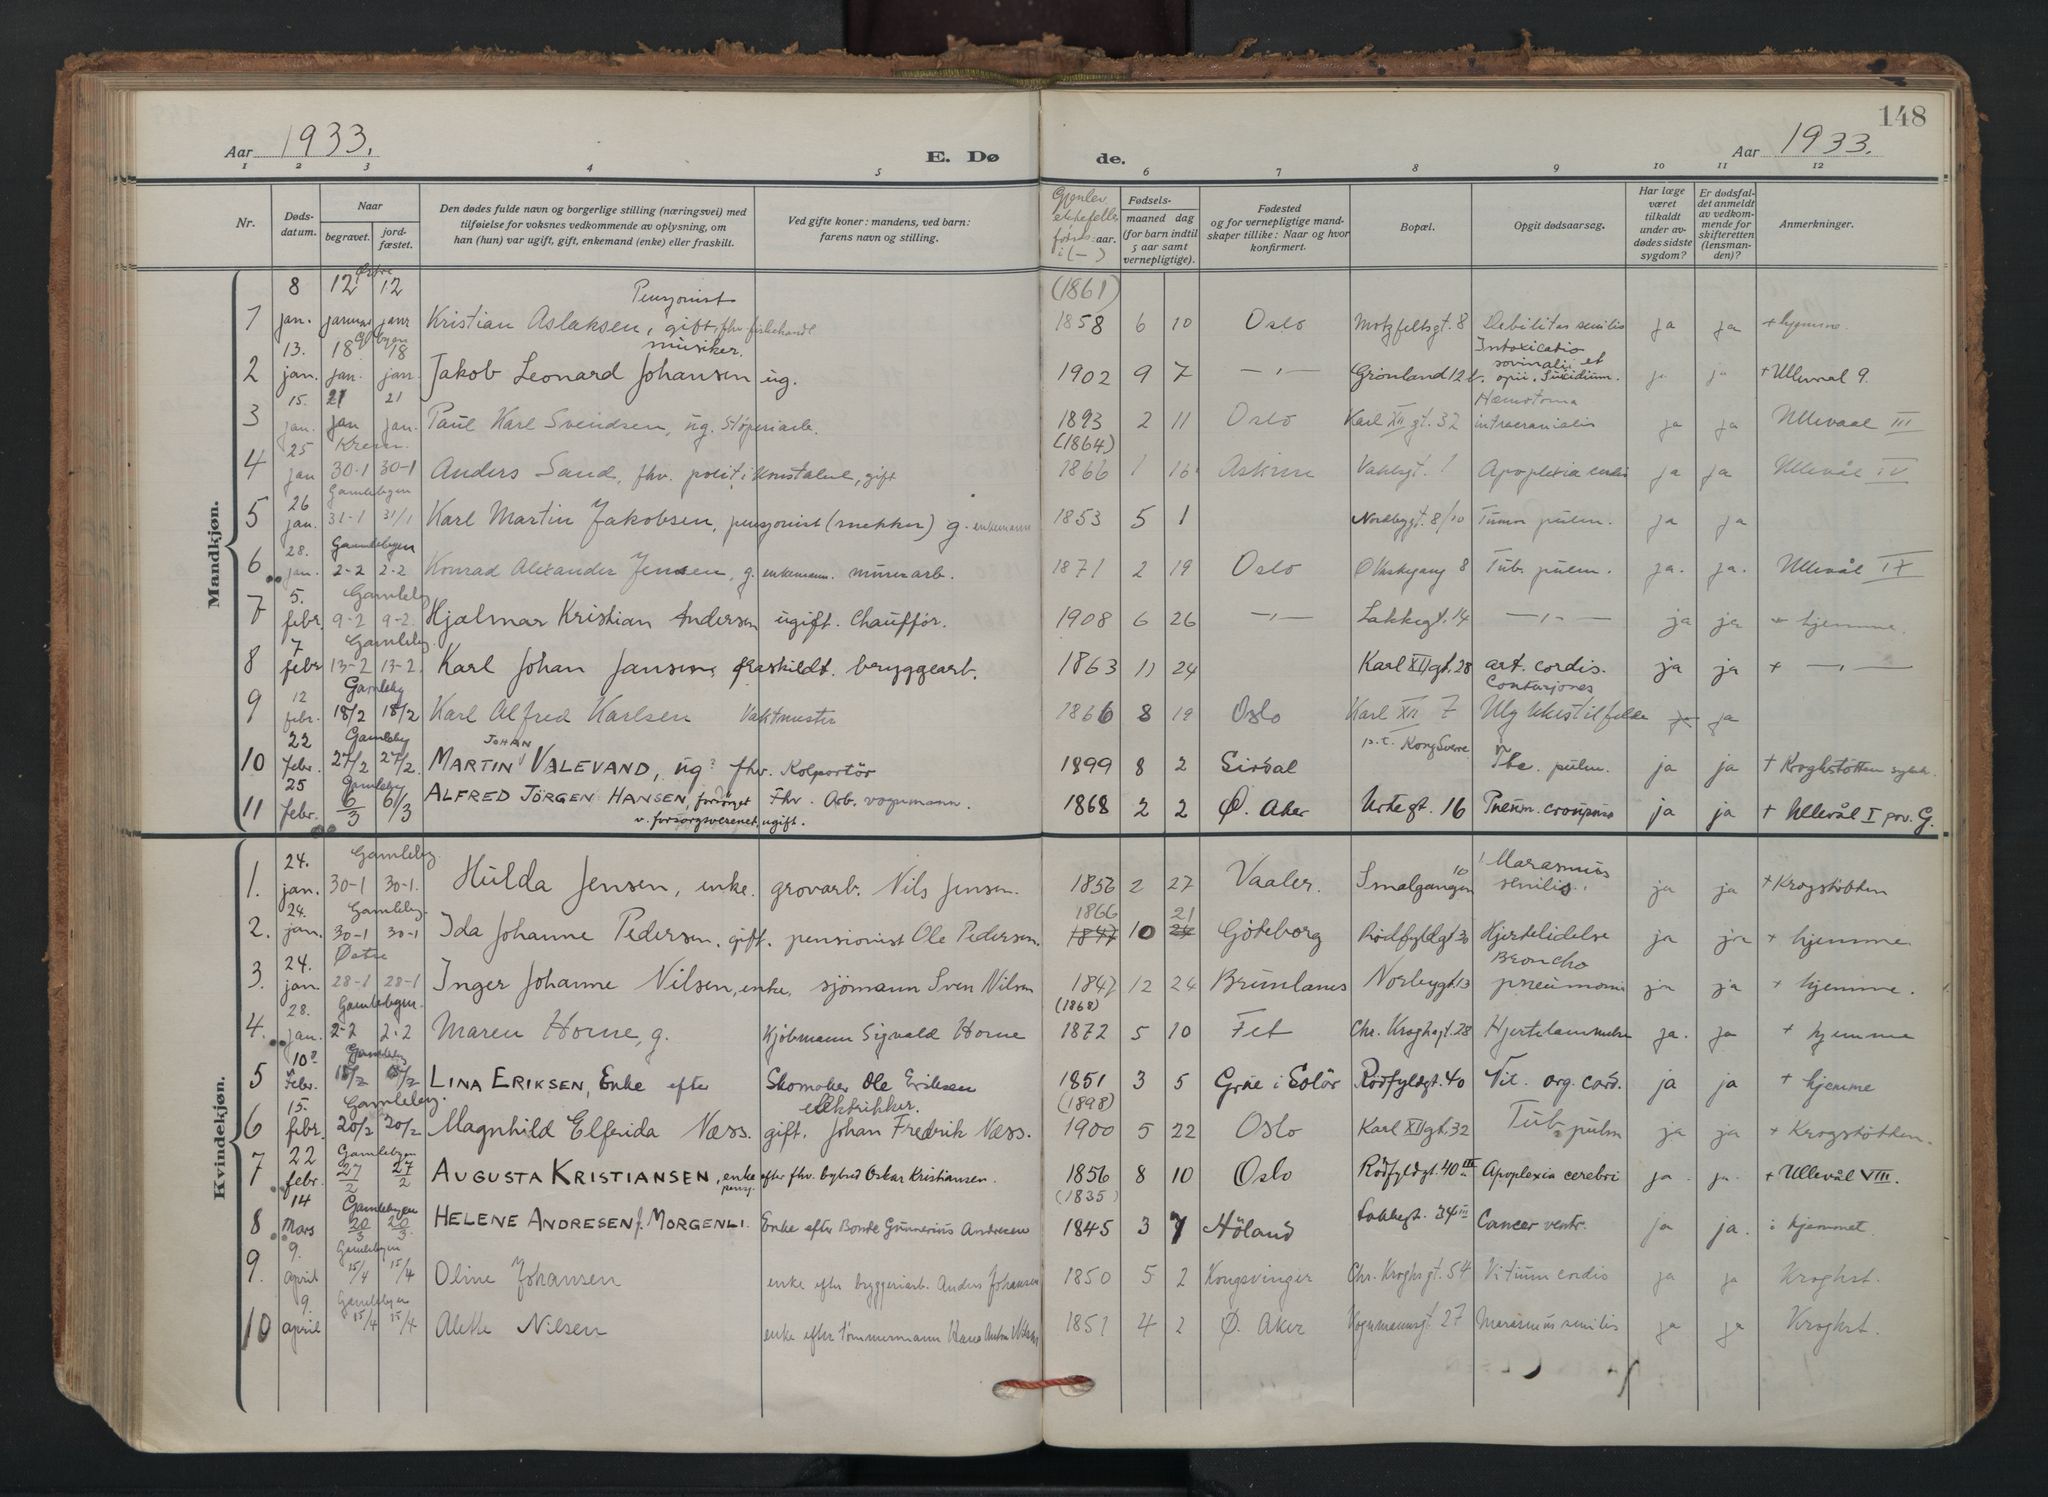 148
Aar 1933. E. Dø de. Aar 1933.
1 2 3 4 5 6 7 8 9 10 11 12
Nr. Døds-datum. Naar begravet. jord-fæstet. Den dødes fulde navn og borgerlige stilling (næringsvei) med tilføielse for voksnes vedkommende av oplysning, om han (hun) var ugift, gift, enkemand (enke) eller fraskilt. Ved gifte koner: mandens, ved barn: farens navn og stilling. Gjenlev. ektefelles fødselsaar. i (—) Fødsels- maaned dag (for barn indtil 5 aar samt vernepligtige). Fødested og for vernepligtige mandskaper tillike: Naar og hvor konfirmert. Bopæl. Opgit dødsaarsag. Har læge været tilkaldt under avdødes sidste sygdom? Er dødsfaldet anmeldt av vedkommende for skifteretten (lensmanden)? Anmerkninger.
Mandkjøn.
Østre
8 12 12 Pensjonist (1861)
1 jan. januar janr Kristian Aslaksen, gift, fhv. fiskehandl 1858 6 10 Oslo Motzfeltsgt. 8 Debilitas senilis ja ja + hjemme.
13. 18 18 musiker. Intoxicatio
2 jan. jan. jan. Jakob Leonard Johansen ug. 1902 9 7 —〃— Grönland 12 b. opii, Suicidium. ja ja + Ullevaal 9.
15. 21 21 Hæmatoma
3 jan. jan jan. Paul Karl Svendsen, ug. Støperiarb. 1893 2 11 Oslo Karl XII gt. 32 intracranialis ja ja Ullevaal III
25 Krem. (1864)
4 jan 30-1 30-1 Anders Sand, fhv. politikonstabel, gift 1866 1 16 Askim Vahlsgt. 1 Apoplexia cordis ja ja Ullevål IV
26 Gamlebyen
5 jan. 31-1 31/1 Karl Martin Jakobsen, pensjonist (snekker) g. enkemann 1853 5 1 Nordbygt. 8/10 Tumor pulm. ja ja
28. Gamlebyen
6 jan. 2-2 2-2 Konrad Alexander Jensen, g. enkemann. murerarb. 1871 2 19 Oslo Ø Vaskegang 8 Tub. pulm. ja. ja. Ullevål IX
5. Gamleby
7 febr. 9-2 9-2. Hjalmar Kristian Andersen ugift. Chauffør. 1908 6 26 —〃— Lakkegt. 14 —〃— ja ja + hjemme.
7 Gamleby
8 febr 13-2 13-2. Karl Johan Jansen, fraskildt. bryggearb. 1863 11 24 Karl XII gt. 28 art. cordis. ja ja + —〃—
12 Gamleby Contusjones
9 febr. 18/2 18/2 Karl Alfred Karlsen Vaktmester 1866 8 19 Oslo Karl XII 7 Ulykkestilfelde ja ja
22 Gamleby JOHAN p.t. Kong Sverre
10 febr. 27/2 27/2. MARTIN VALEVAND, ug? fhv. Kolportör 1899 8 2 Sirdal Tbc. pulm. ja ja + Kroghstøtten sykeh.
25 Gamleby
11 febr. 6/3 6/3 ALFRED JÖRGEN HANSEN, forsörget Fhv. Arb. vognmann. 1868 2 2 Ø. Aker Urtegt. 16 Pneum. crouposa ja ja + Ullevål I pav. G.
v. forsorgsvesenet, ugift.
Kvindekjøn.
24. Gamleby. 10 Marasmus
1. jan. 30-1 30-1. Hulda Jensen, enke. grovarb. Nils Jensen. 1856 2 27 Vaaler. Smalgangen senilis. ja ja + Krogstötten
24. Gamleby. 1866 21
2. jan. 30-1 30-1 Ida Johanne Pedersen. gift. pensionist Ole Pedersen. 1847 10 24 Göteborg Rödfyldgt 30 Hjertelidelse ja ja + hjemme.
24. Østre Broncho
3. jan. 28-1 28-1 Inger Johanne Nilsen, enke. sjömann Sven Nilsen 1847 12 24 Brunlanes Norbygt. 13 pneumoni ja ja + hjemme.
28. Gamlebyen. (1868)
4. jan. 2-2 2-2 Maren Horne, g. Kjöbmann Sigvald Horne 1872 5 10 Fet Chr. Kroghsgt. 28 Hjertelammelse ja. ja + hjemme
10? Gamleby
5 Febr. 15/2 15/2 LINA ERIKSEN, Enke efter Skomaker Ole Eriksen 1851 3 5 Grue i Solör Rödfyldgt. 40 Vit. org. cord. ja ja + hjemme
15. Gamleby. elektrikker. (1898)
6 febr. 20/2 20/2 Magnhild Elferida Næss. gift. Johan Fredrik Næss. 1900 5 22 Oslo Karl XII gt. 32 Tub. pulm ja ja + Krogstötten.
22 Gamlebyen
7 febr. 27/2 27/2 AUGUSTA KRISTIANSEN, enke efter fhv. bybud Oskar Kristiansen. 1856 8 10 Oslo Rödfyldgt. 40 III Apoplexia cerebri ja. ja. + Ullevål VIII.
pensj.
14 Gamlebyen (1835)
8 Mars 20/3 20/3. HELENE ANDRESEN f. MORGENLI. Enke efter Bonde Gunnerius Andresen 1845 3 7 Höland Lakkegt. 34 III Cancer ventr. ja ja. i hjemmet
9. Gamlebyen
9. april 15/4 15/4 Oline Johansen enke efter bryggeriarb. Anders Johansen 1850 5 2 Kongsvinger Chr. Kroghsgt. 54 Vitium cordis ja ja Kroghst.
9. Gamlebyen
10 april 15/4 15/4 Alette Nilsen enke efter tömmermann Hans Anton Nilsen 1851 4 2 Ø. Aker Vognmannsgt. 27 Marasmus senilis ja ja Kroghst.